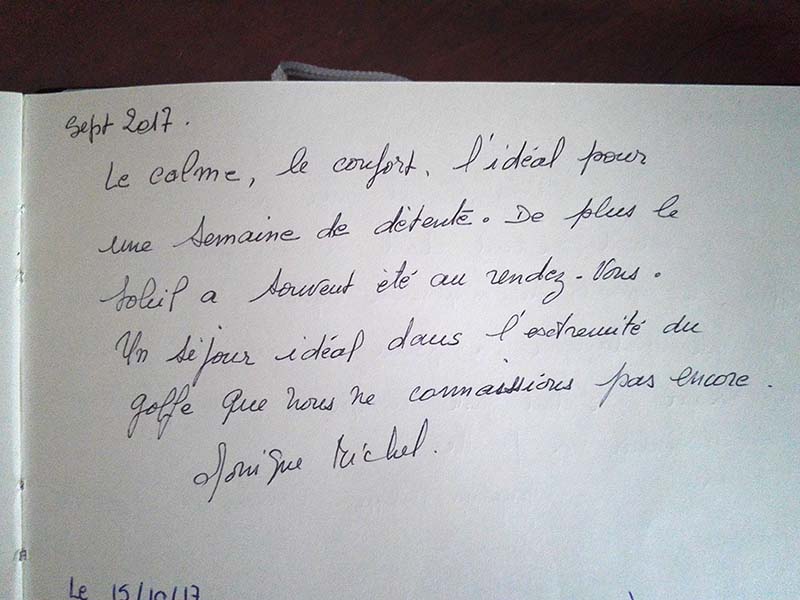 Sept 2017.
Le calme, le confort, l'idéal pour
une semaine de détente. De plus le
soleil a souvent été au rendez-vous.
Un séjour idéal dans l'extremité du
golfe que nous ne connaissions pas encore.
Monique Michel.
Le 15/10/17